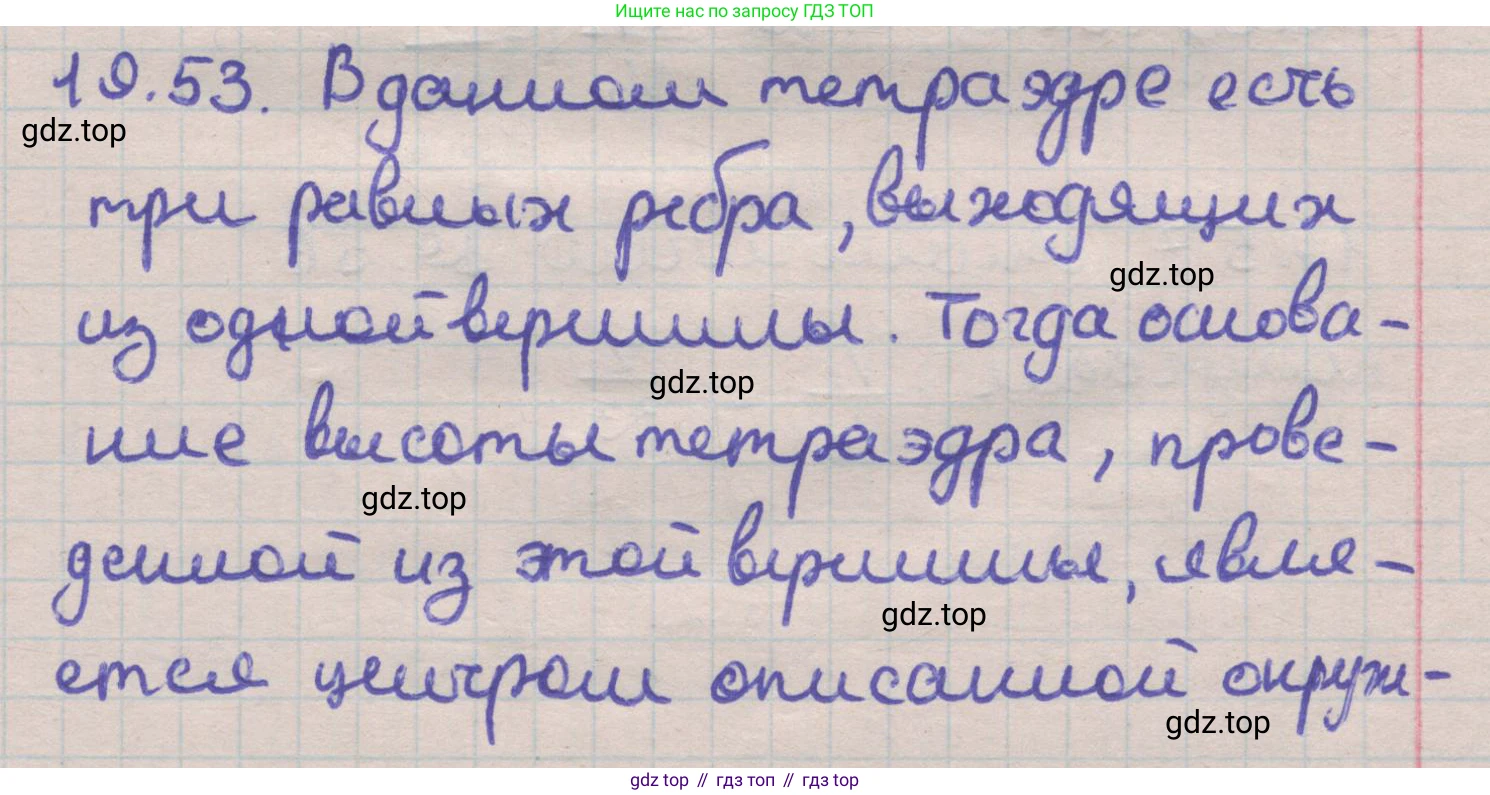 Ищите нас по запросу ГДЗ ТОП
19.53. В данном тетраэдре есть
gdz.top
три равных ребра, выходящих
gdz.top
из одной вершины. Тогда основа-
gdz.top
ние высоты тетраэдра, прове-
gdz.top
денной из этой вершины, явля-
gdz.top
ется центром описанной окруж-
gdz.top
gdz top // гдз топ // гдз top